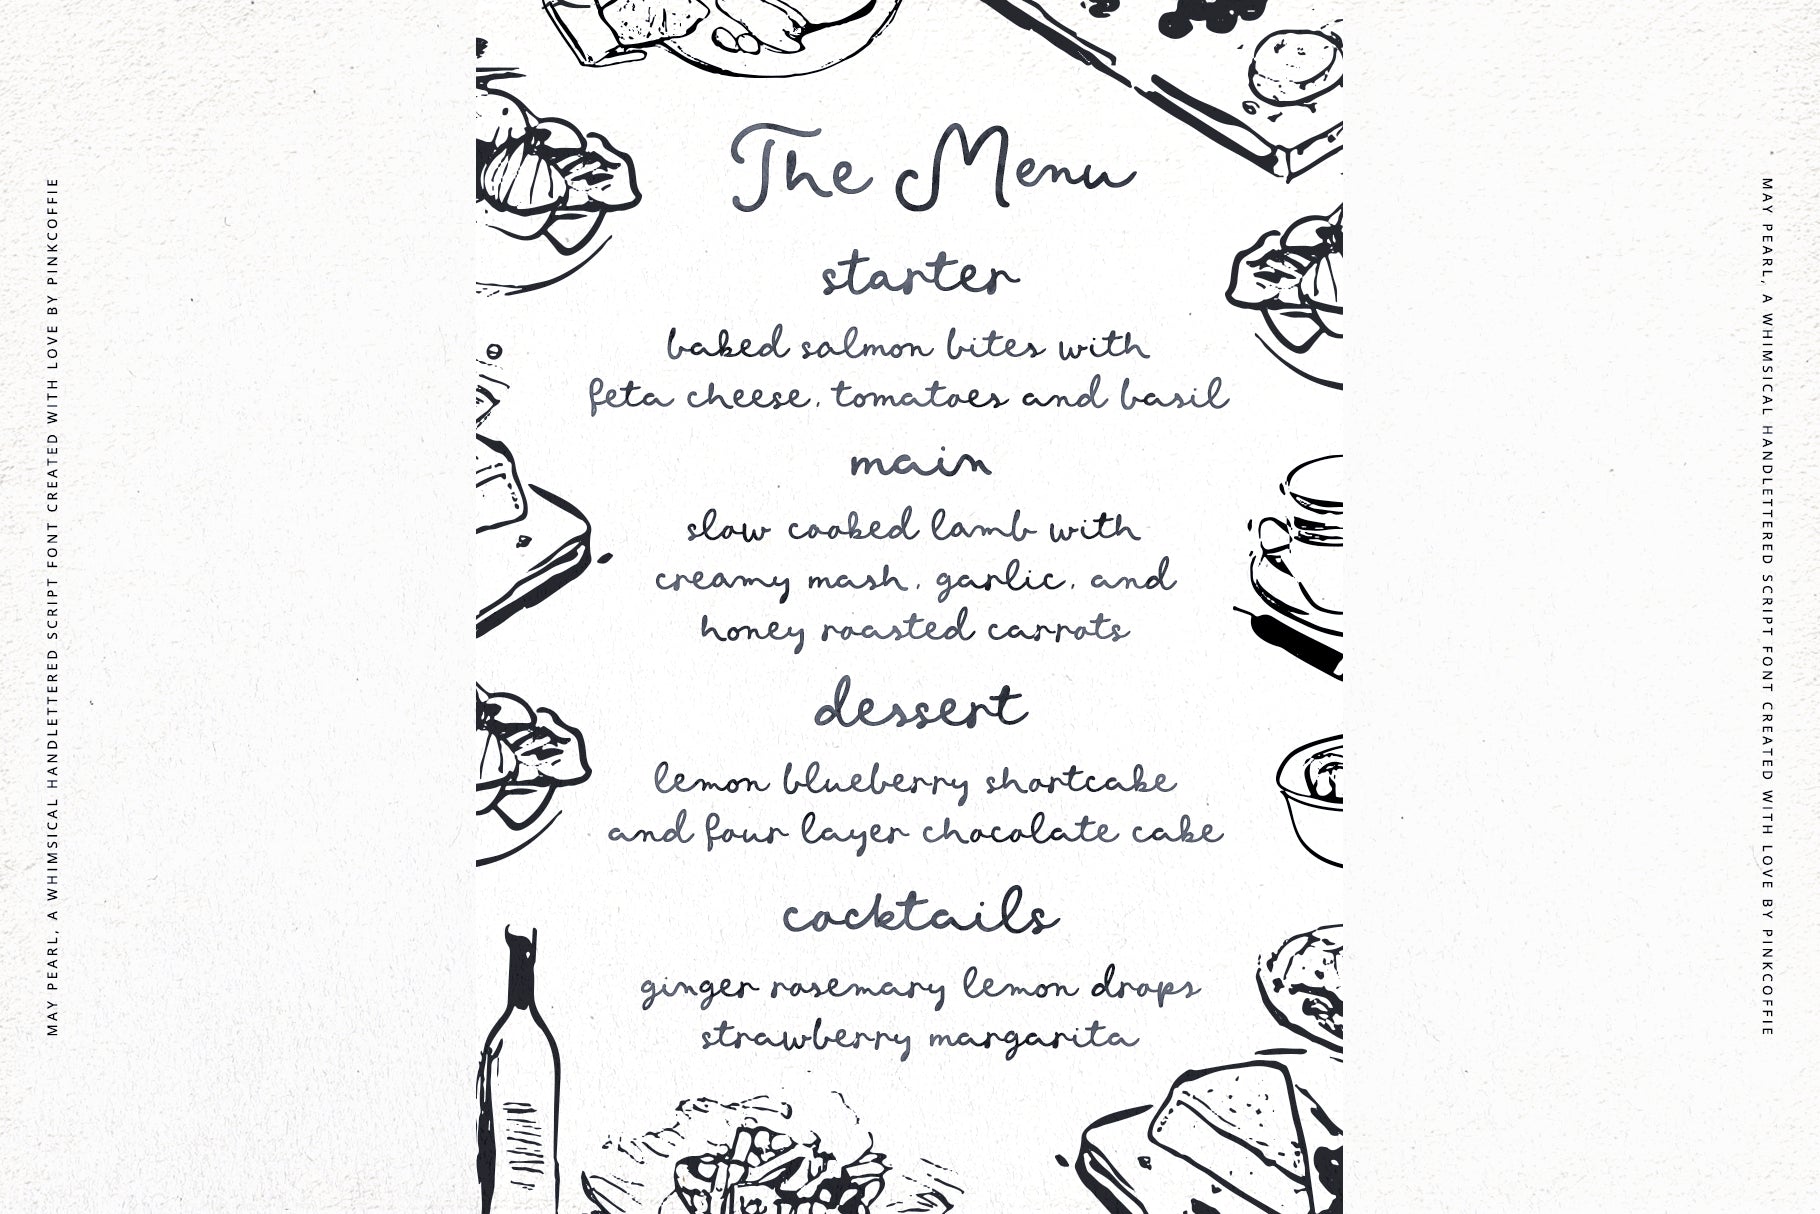 MAY PEARL, A WHIMSICAL HANDLETTERED SCRIPT FONT CREATED WITH LOVE BY PINKCOFFIE
The Menu
starter
baked salmon bites with
feta cheese, tomatoes and basil
main
slow cooked lamb with
creamy mash, garlic, and
honey roasted carrots
dessert
lemon blueberry shortcake
and four layer chocolate cake
cocktails
ginger rosemary lemon drops
strawberry margarita
MAY PEARL, A WHIMSICAL HANDLETTERED SCRIPT FONT CREATED WITH LOVE BY PINKCOFFIE